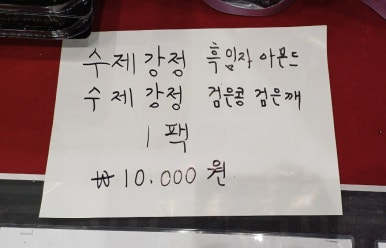 수제 강정 흑임자 아몬드
수제 강정 검은콩 검은깨
1 팩
₩ 10.000 원